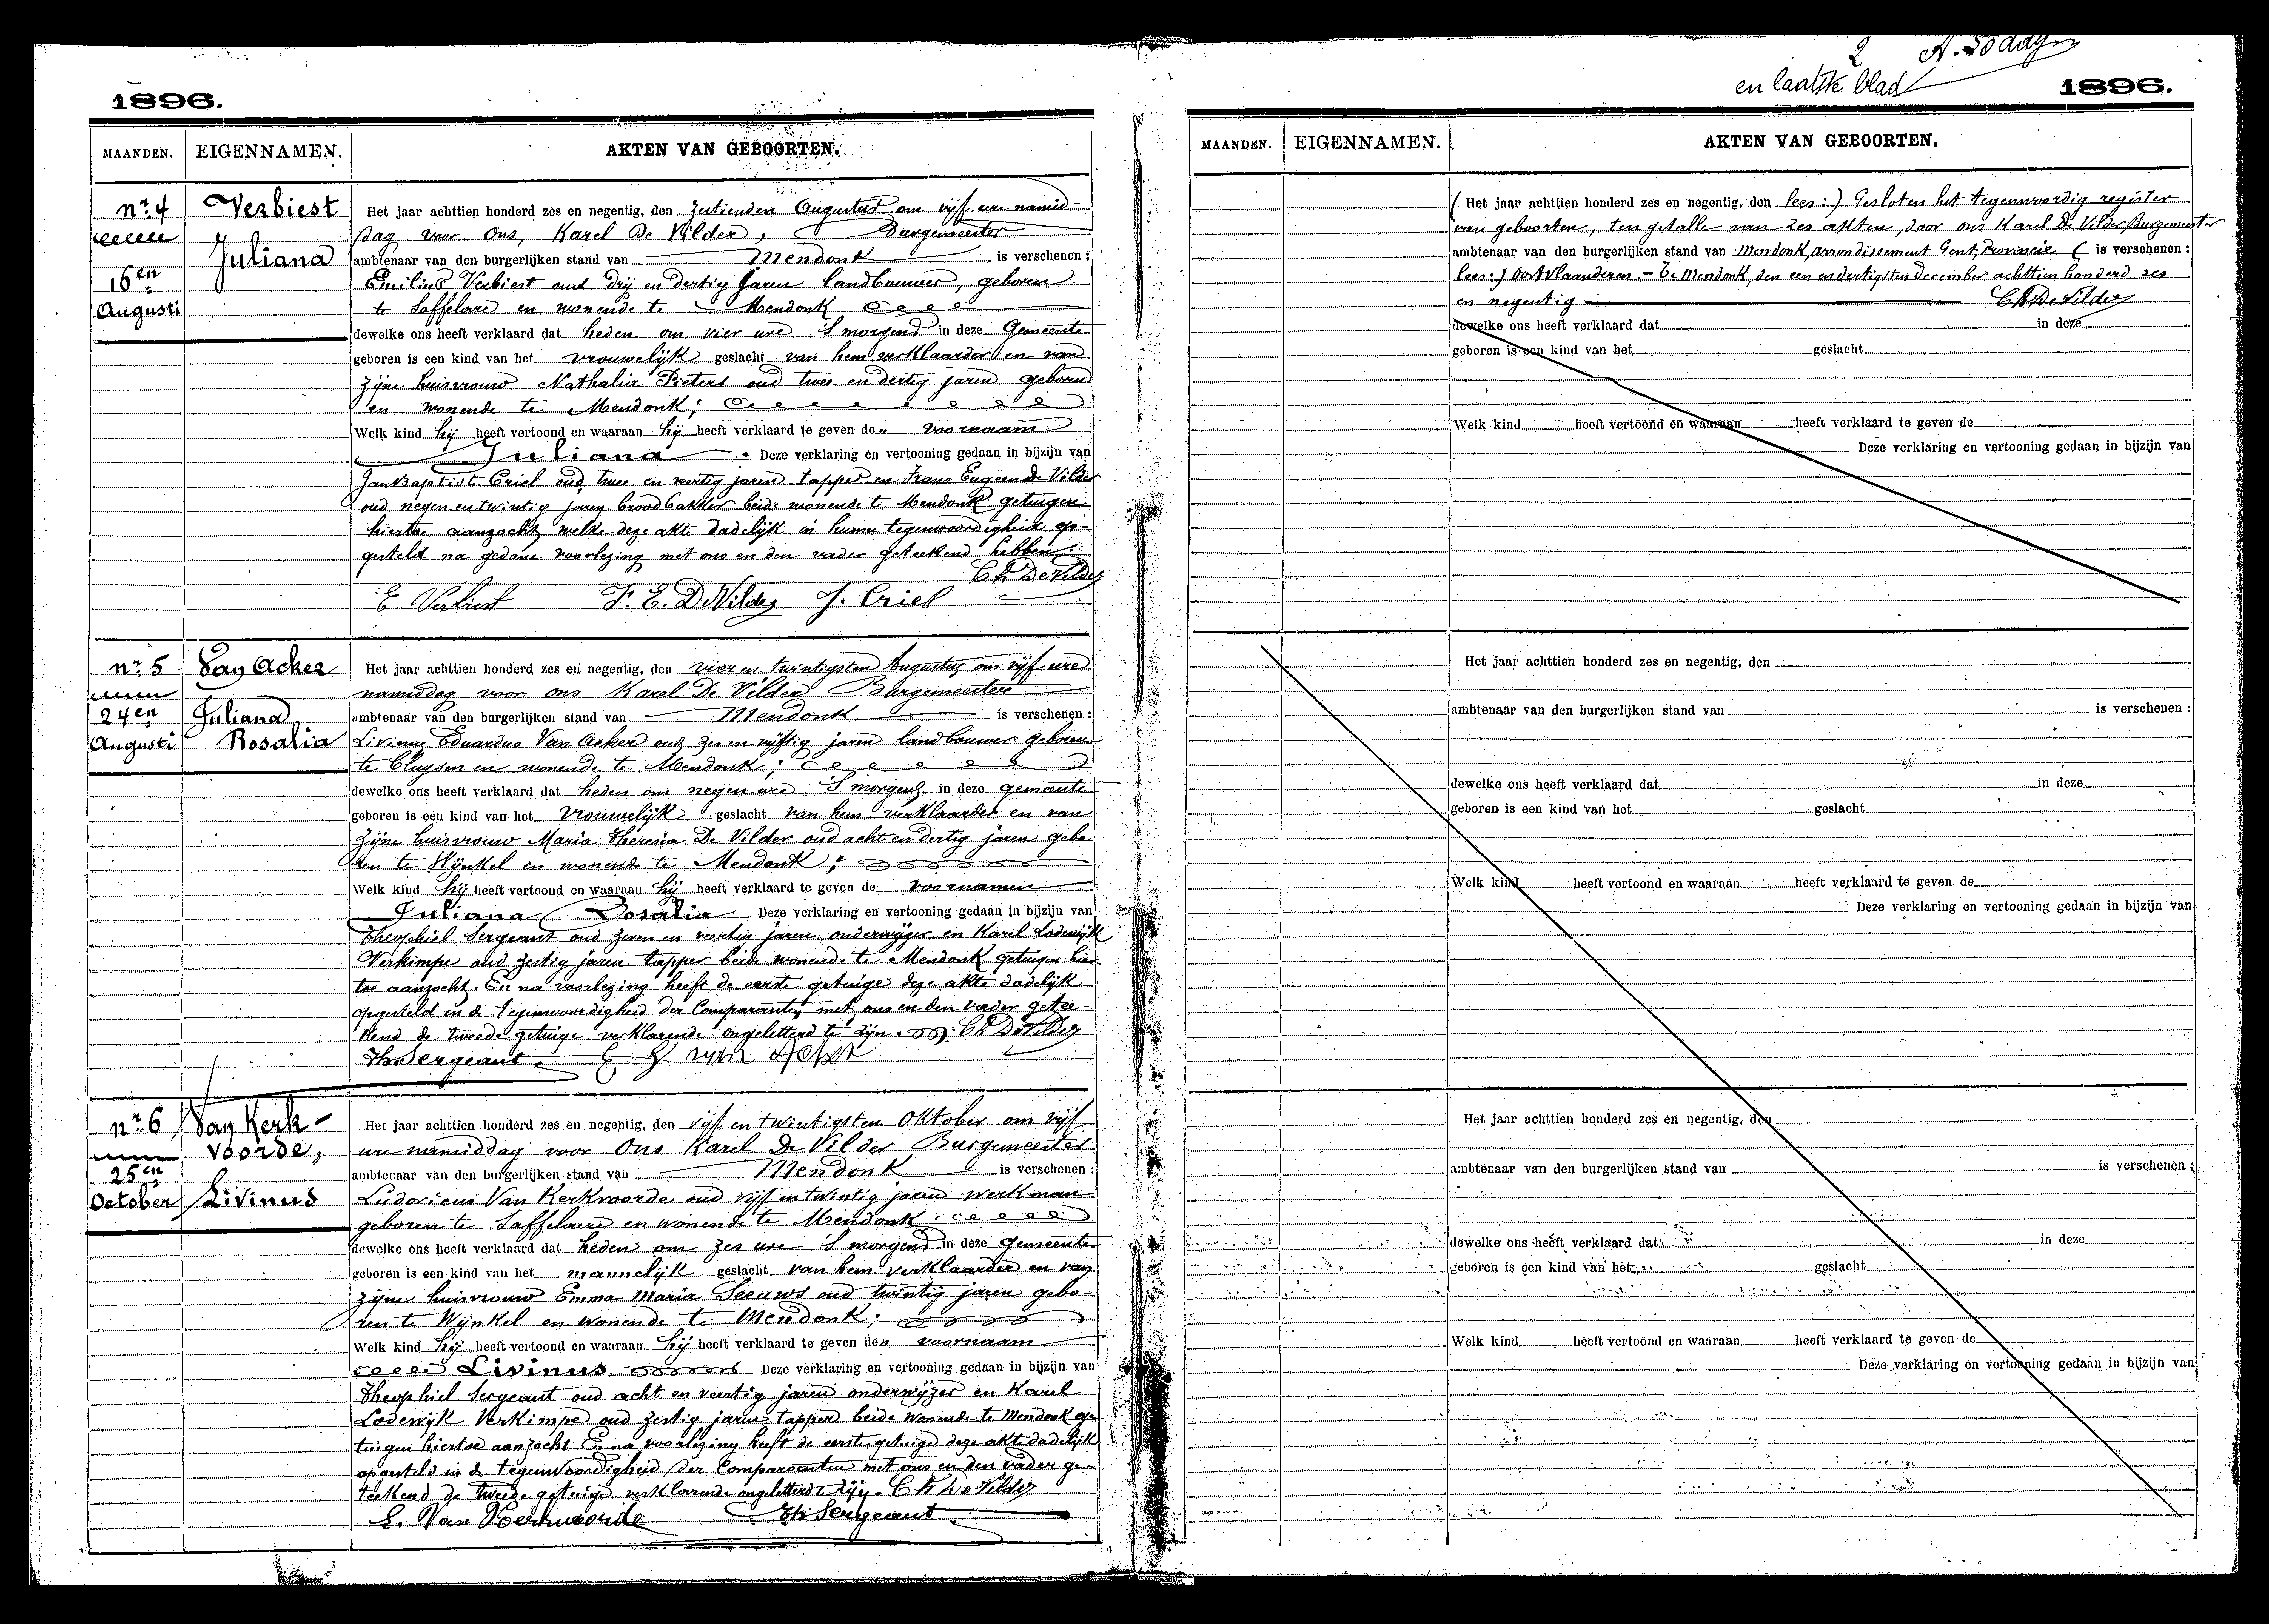 1896.
MAANDEN. EIGENNAMEN. AKTEN VAN GEBOORTEN.
nr. 4
16en
Augusti
Verbiest
Juliana
Het jaar achttien honderd zes en negentig, den zestienden Augustus om vijf ure namid-
dag voor Ons, Karel De Vilder, Burgemeester
ambtenaar van den burgerlijken stand van Mendonk is verschenen :
Emilius Verbiest oud drij en dertig Jaren landbouwer, geboren
te Saffelare en wonende te Mendonk
dewelke ons heeft verklaard dat heden om vier ure 'S morgens in deze Gemeente
geboren is een kind van het vrouwelijk geslacht van hem verklaarder en van
zijne huisvrouw Nathalia Pieters oud twee en dertig jaren geboren
en wonende te Mendonk;
Welk kind hij heeft vertoond en waaraan hij heeft verklaard te geven den voornaam
Juliana. Deze verklaring en vertooning gedaan in bijzijn van
Jan Baptiste Criel oud twee en veertig jaren tapper en Frans Eugeen De Vilder
oud negen en twintig jaren broodbakker beide wonende te Mendonk getuigen
hiertoe aanzocht, welke deze akte dadelijk in hunne tegenwoordigheid op-
gesteld na gedane voorlezing met ons en den vader geteekend hebben.
Ch De Vilder
E Verbiest F. E. De Vilder J. Criel
nr. 5
24en
Augusti
Van Acker
Juliana
Rosalia
Het jaar achttien honderd zes en negentig, den vier en twintigsten Augustus om vijf ure
namiddag voor ons Karel De Vilder Burgemeester
ambtenaar van den burgerlijken stand van Mendonk is verschenen :
Livinus Eduardus Van Acker oud zes en vijftig jaren landbouwer geboren
te Cluysen en wonende te Mendonk;
dewelke ons heeft verklaard dat heden om negen ure 'S morgens in deze gemeente
geboren is een kind van het vrouwelijk geslacht van hem verklaarder en van
zijne huisvrouw Maria Theresia De Vilder oud acht en dertig jaren gebo-
ren te Wijnkel en wonende te Mendonk;
Welk kind hij heeft vertoond en waaraan hij heeft verklaard te geven de voornamen
Juliana Rosalia Deze verklaring en vertooning gedaan in bijzijn van
Theophiel Sergeant oud zeven en veertig jaren onderwijzer en Karel Lodewijk
Verkimpe oud zestig jaren tapper beide wonende te Mendonk getuigen hier-
toe aanzocht. En na voorlezing heeft de eerste getuige deze akte dadelijk
opgesteld in de tegenwoordigheid der Comparanten met ons en den vader getee-
kend de tweede getuige verklarende ongeletterd te zijn. Ch De Vilder
Th Sergeant E van Acker
nr. 6
25en
October
Van Kerk-
voorde,
Livinus
Het jaar achttien honderd zes en negentig, den vijf en twintigsten Oktober om vijf
ure namiddag voor Ons Karel De Vilder Burgemeester
ambtenaar van den burgerlijken stand van Mendonk is verschenen :
Ludovicus Van Kerkvoorde oud vijf en twintig jaren werkman
geboren te Saffelaere en wonende te Mendonk.
dewelke ons heeft verklaard dat heden om zes ure 'S morgens in deze gemeente
geboren is een kind van het mannelijk geslacht van hem verklaarder en van
zijne huisvrouw Emma Maria Seeuws oud twintig jaren gebo-
ren te Wijnkel en wonende te Mendonk;
Welk kind hij heeft vertoond en waaraan hij heeft verklaard te geven den voornaam
Livinus Deze verklaring en vertooning gedaan in bijzijn van
Theophiel Sergeant oud acht en veertig jaren onderwijzer en Karel
Lodewijk Verkimpe oud zestig jaren tapper beide wonende te Mendonk ge-
tuigen hiertoe aanzocht En na voorlezing heeft de eerste getuige deze akte dadelijk
opgesteld in de tegenwoordigheid der Comparanten met ons en den vader ge-
teekend de tweede getuige verklarende ongeletterd te zijn. Ch De Vilder
L. Van Kerkvoorde Th Sergeant
2
en laatste blad
1896.
MAANDEN. EIGENNAMEN. AKTEN VAN GEBOORTEN.
( Het jaar achttien honderd zes en negentig, den lees :) Gesloten het tegenwoordig register
van geboorten, ten getalle van zes akten, door ons Karel De Vilder, Burgemeester
ambtenaar van den burgerlijken stand van Mendonk, arrondissement Gent, Provincie ( is verschenen :
lees :) Oostvlaanderen. - Te Mendonk, den een en dertigsten december achttien honderd zes
en negentig Ch De Vilder
dewelke ons heeft verklaard dat in deze
geboren is een kind van het geslacht
Welk kind heeft vertoond en waaraan heeft verklaard te geven de
Deze verklaring en vertooning gedaan in bijzijn van
Het jaar achttien honderd zes en negentig, den
ambtenaar van den burgerlijken stand van is verschenen :
dewelke ons heeft verklaard dat in deze
geboren is een kind van het geslacht
Welk kind heeft vertoond en waaraan heeft verklaard te geven de
Deze verklaring en vertooning gedaan in bijzijn van
Het jaar achttien honderd zes en negentig, den
ambtenaar van den burgerlijken stand van is verschenen :
dewelke ons heeft verklaard dat in deze
geboren is een kind van het geslacht
Welk kind heeft vertoond en waaraan heeft verklaard te geven de
Deze verklaring en vertooning gedaan in bijzijn van